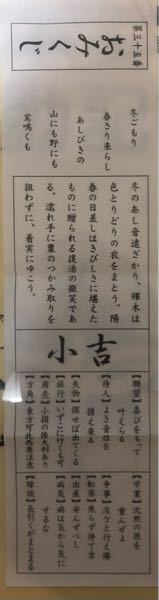 第三十五番
おみくじ
冬ごもり
春さり来らし
あしびきの
山にも野にも
鶯鳴くも
冬のあし音遠ざかり、裸木は
色とりどりの衣をまとう。陽
春の日差しはきびしさに堪えた
ものに贈られる復活の微笑であ
る。濡れ手に粟のつかみ取りを
狙わずに、着実にゆこう。
小吉
【願望】喜びをもって
叶えらる
【待人】よき音信を
携え来る
【失物】探せば出てくる
【旅行】いずこに行くも可
【商売】小損の後大利あり
【方角】東方可北西要注意
【学業】沈黙の徳を
重んぜよ
【争事】淡々と行え勝
【転居】焦らず待て吉
【出産】安んずべし
【病気】病は気から気に
するな
【縁談】長引くがまとまる